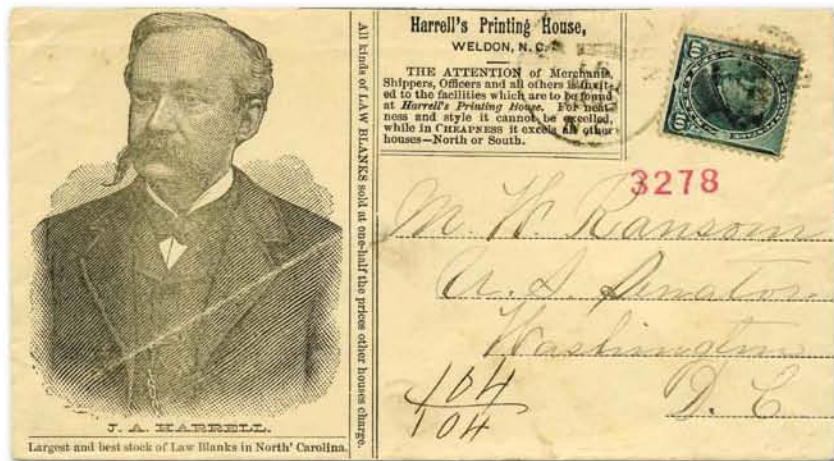 J. A. HARRELL.
Largest and best stock of Law Blanks in North' Carolina.
All kinds of LAW BLANKS sold at one-half the prices other houses charge.
Harrell's Printing House,
WELDON, N. C.
THE ATTENTION of Merchants,
Shippers, Officers and all others is invit-
ed to the facilities which are to be found
at Harrell's Printing House. For neat-
ness and style it cannot be excelled,
while in CHEAPNESS it excels all other
houses—North or South.
3278
M. W. Ransom
U. S. Senator
Washington
D. C
104
104